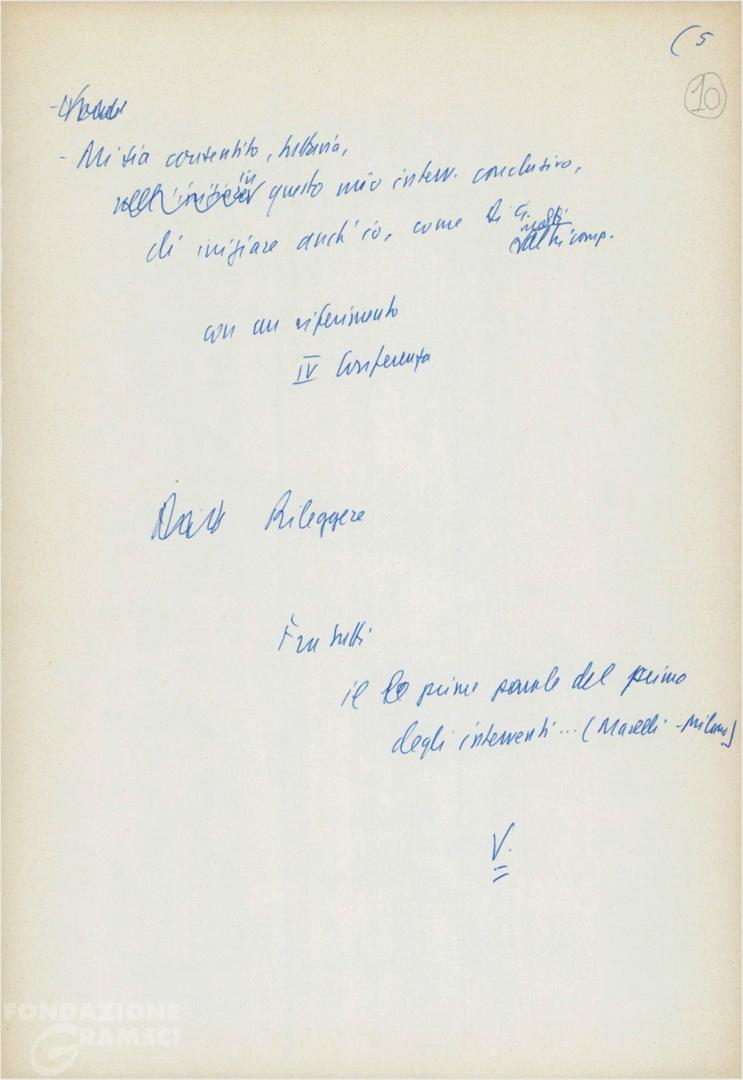 ( 5
10
- Mi sia consentito, tuttavia,
in
questo mio interv. conclusivo,
di iniziare anch'io, come
molti
altri comp.
con un riferimento
IV Conferenza
Rileggere
Fra tutti
le prime parole del primo
degli interventi... ( - Milano)
V.
FONDAZIONE
GRAMSCI